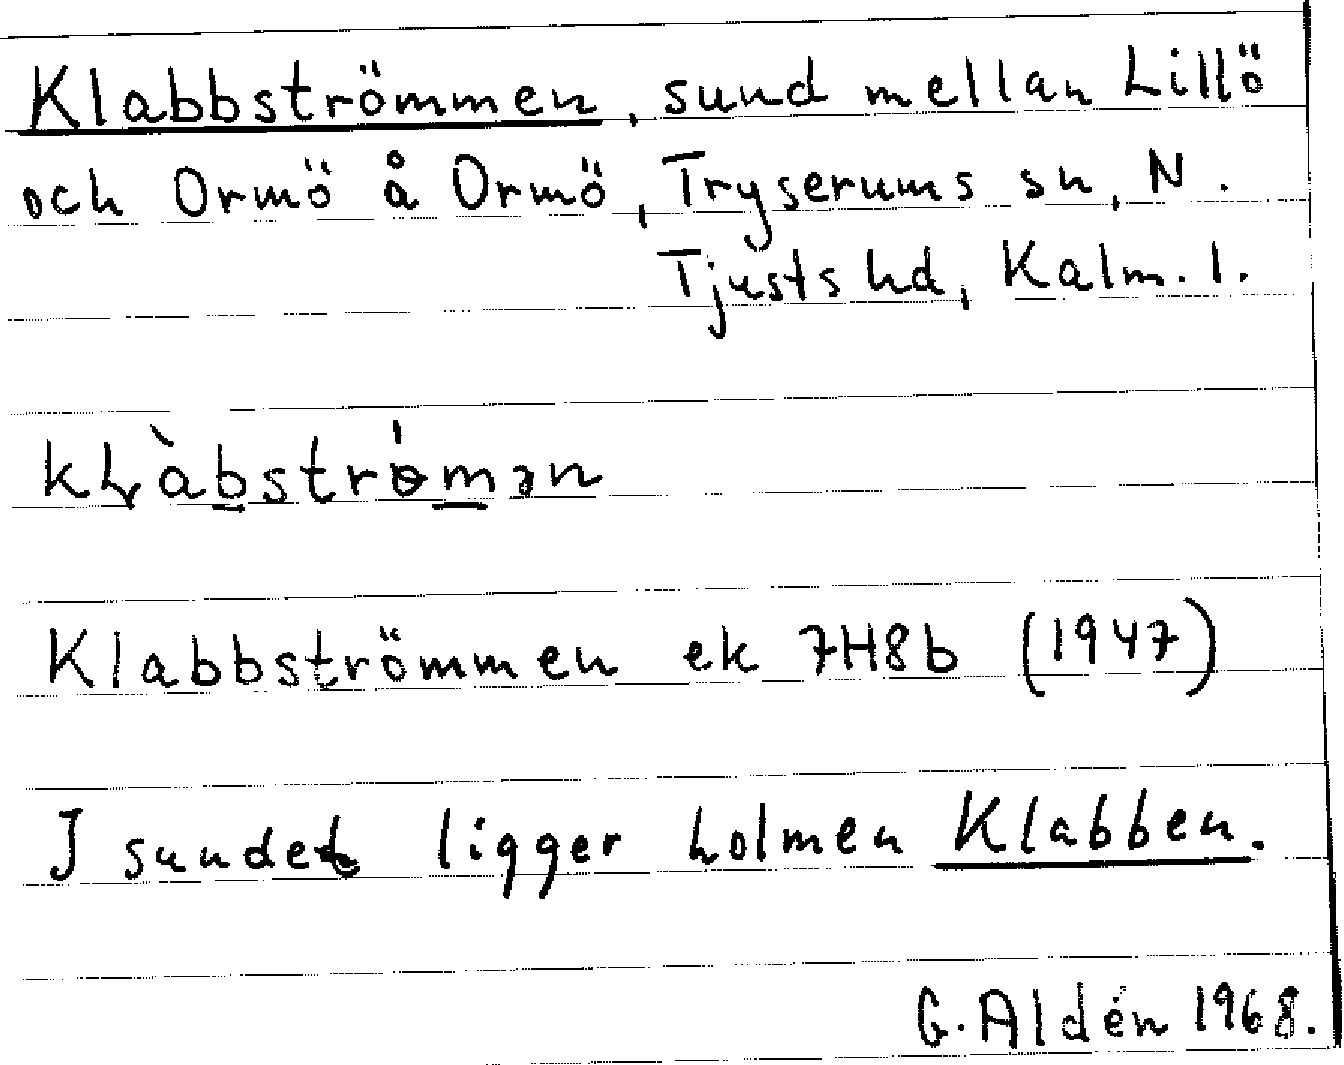 Klabbströmmen, sund mellan Lillö
och Ormö å Ormö, Tryserums sn, N.
Tjusts hd, Kalm. l.
kɬàb̲strɵ́m̲ən
Klabbströmmen ek 7H8b (1947)
I sundet ligger holmen Klabben.
G. Aldén 1968.